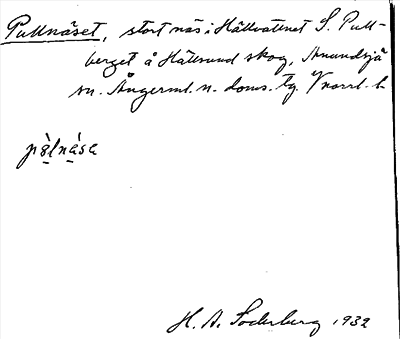 Pullnäset, stort näs i Hällvattnet S. Pull-
berget å Hällsund skog, Anundsjö
sn. Ångerml. n. doms. tg. Vnorrl. l.
H. A. Söderberg 1932